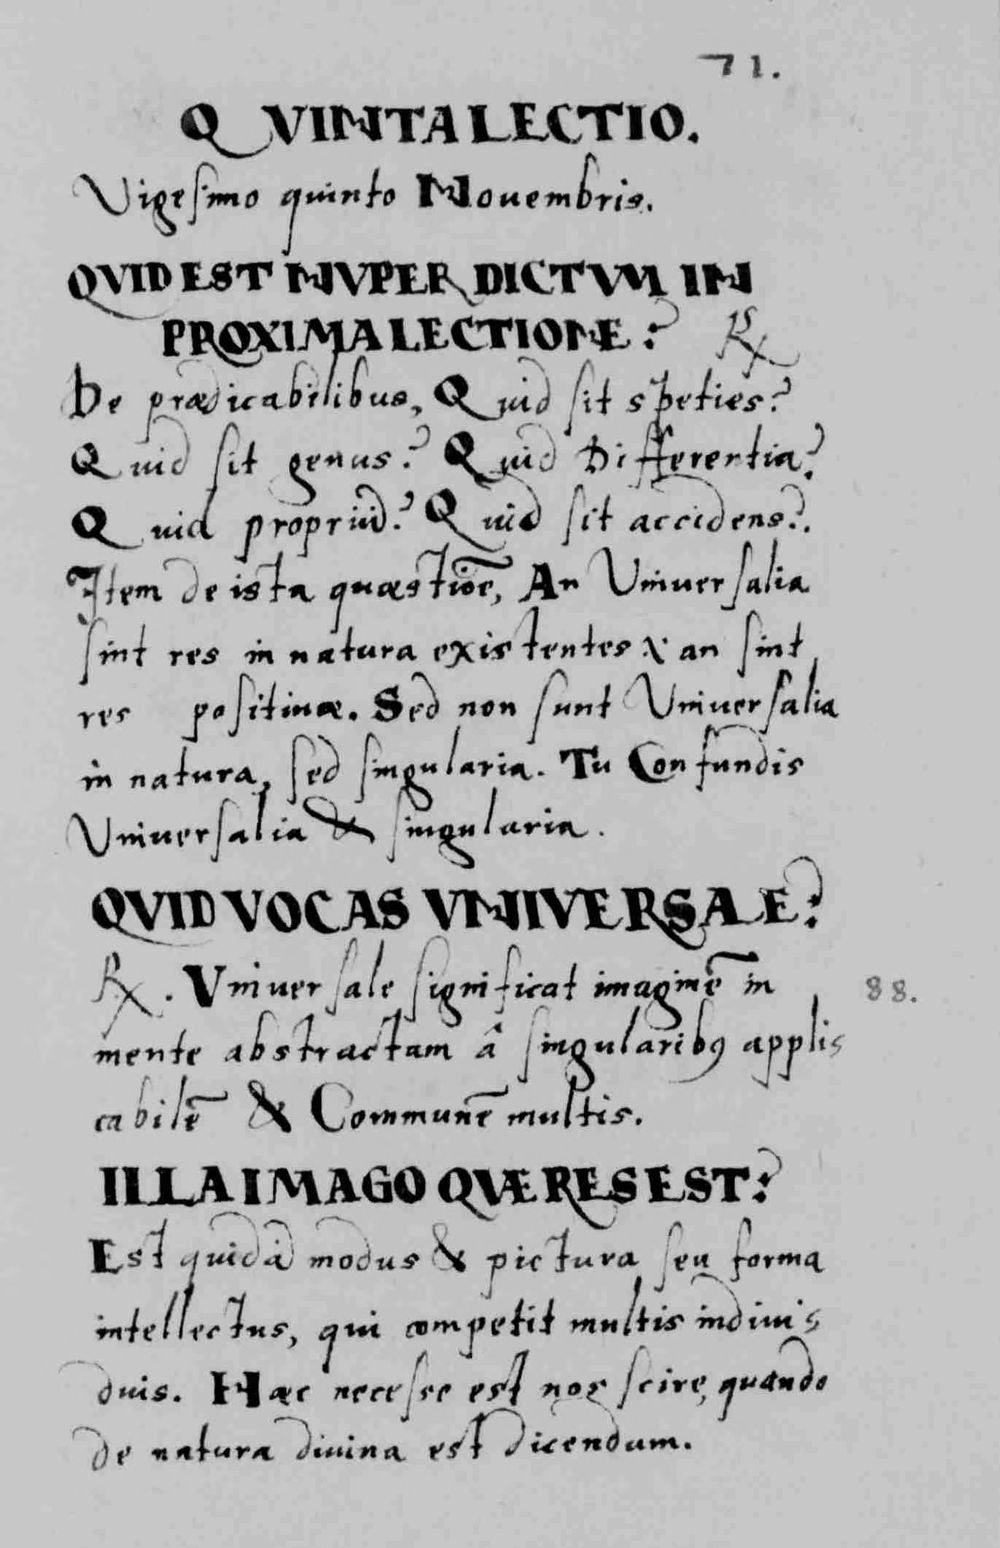 71.
QVINTA LECTIO.
Vigesimo quinto Nouembris.
QVID EST NVPER DICTVM IN
PROXIMA LECTIONE? ℞
De prædicabilibus, Quid sit speties?
Quid sit genus? Quid Differentia?
Quid propriũ? Quid sit accidens?.
Item de ista quæstiõe, An Vniuersalia
sint res in natura existentes & an sint
res positiuæ. Sed non sunt Vniuersalia
in natura, sed singularia. Tu Confundis
Vniuersalia & singularia.
QVID VOCAS VNIVERSALE?
℞. Vniuersale significat imaginẽ in
88.
mente abstractam â singularibꝯ appli⸗
cabilẽ & Communẽ multis.
ILLA IMAGO QVÆ RES EST?
Est quidã modus & pictura seu forma
intellectus, qui competit multis indiui⸗
duis. Hæc necesse est nos scire, quando
de natura diuina est dicendum.